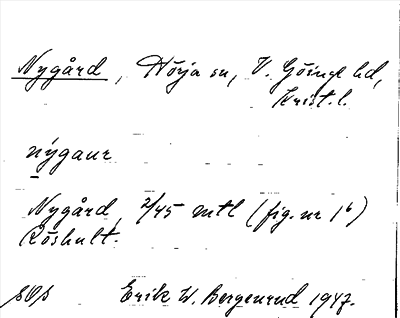 Nygård, Nörja sn, V. Göinge hd,
Krist. l.
nýgaur
Nygård, 2/45 mtl (fig. nr 1⁶)
Röshult.
Erik W. Bergenrud 1947.